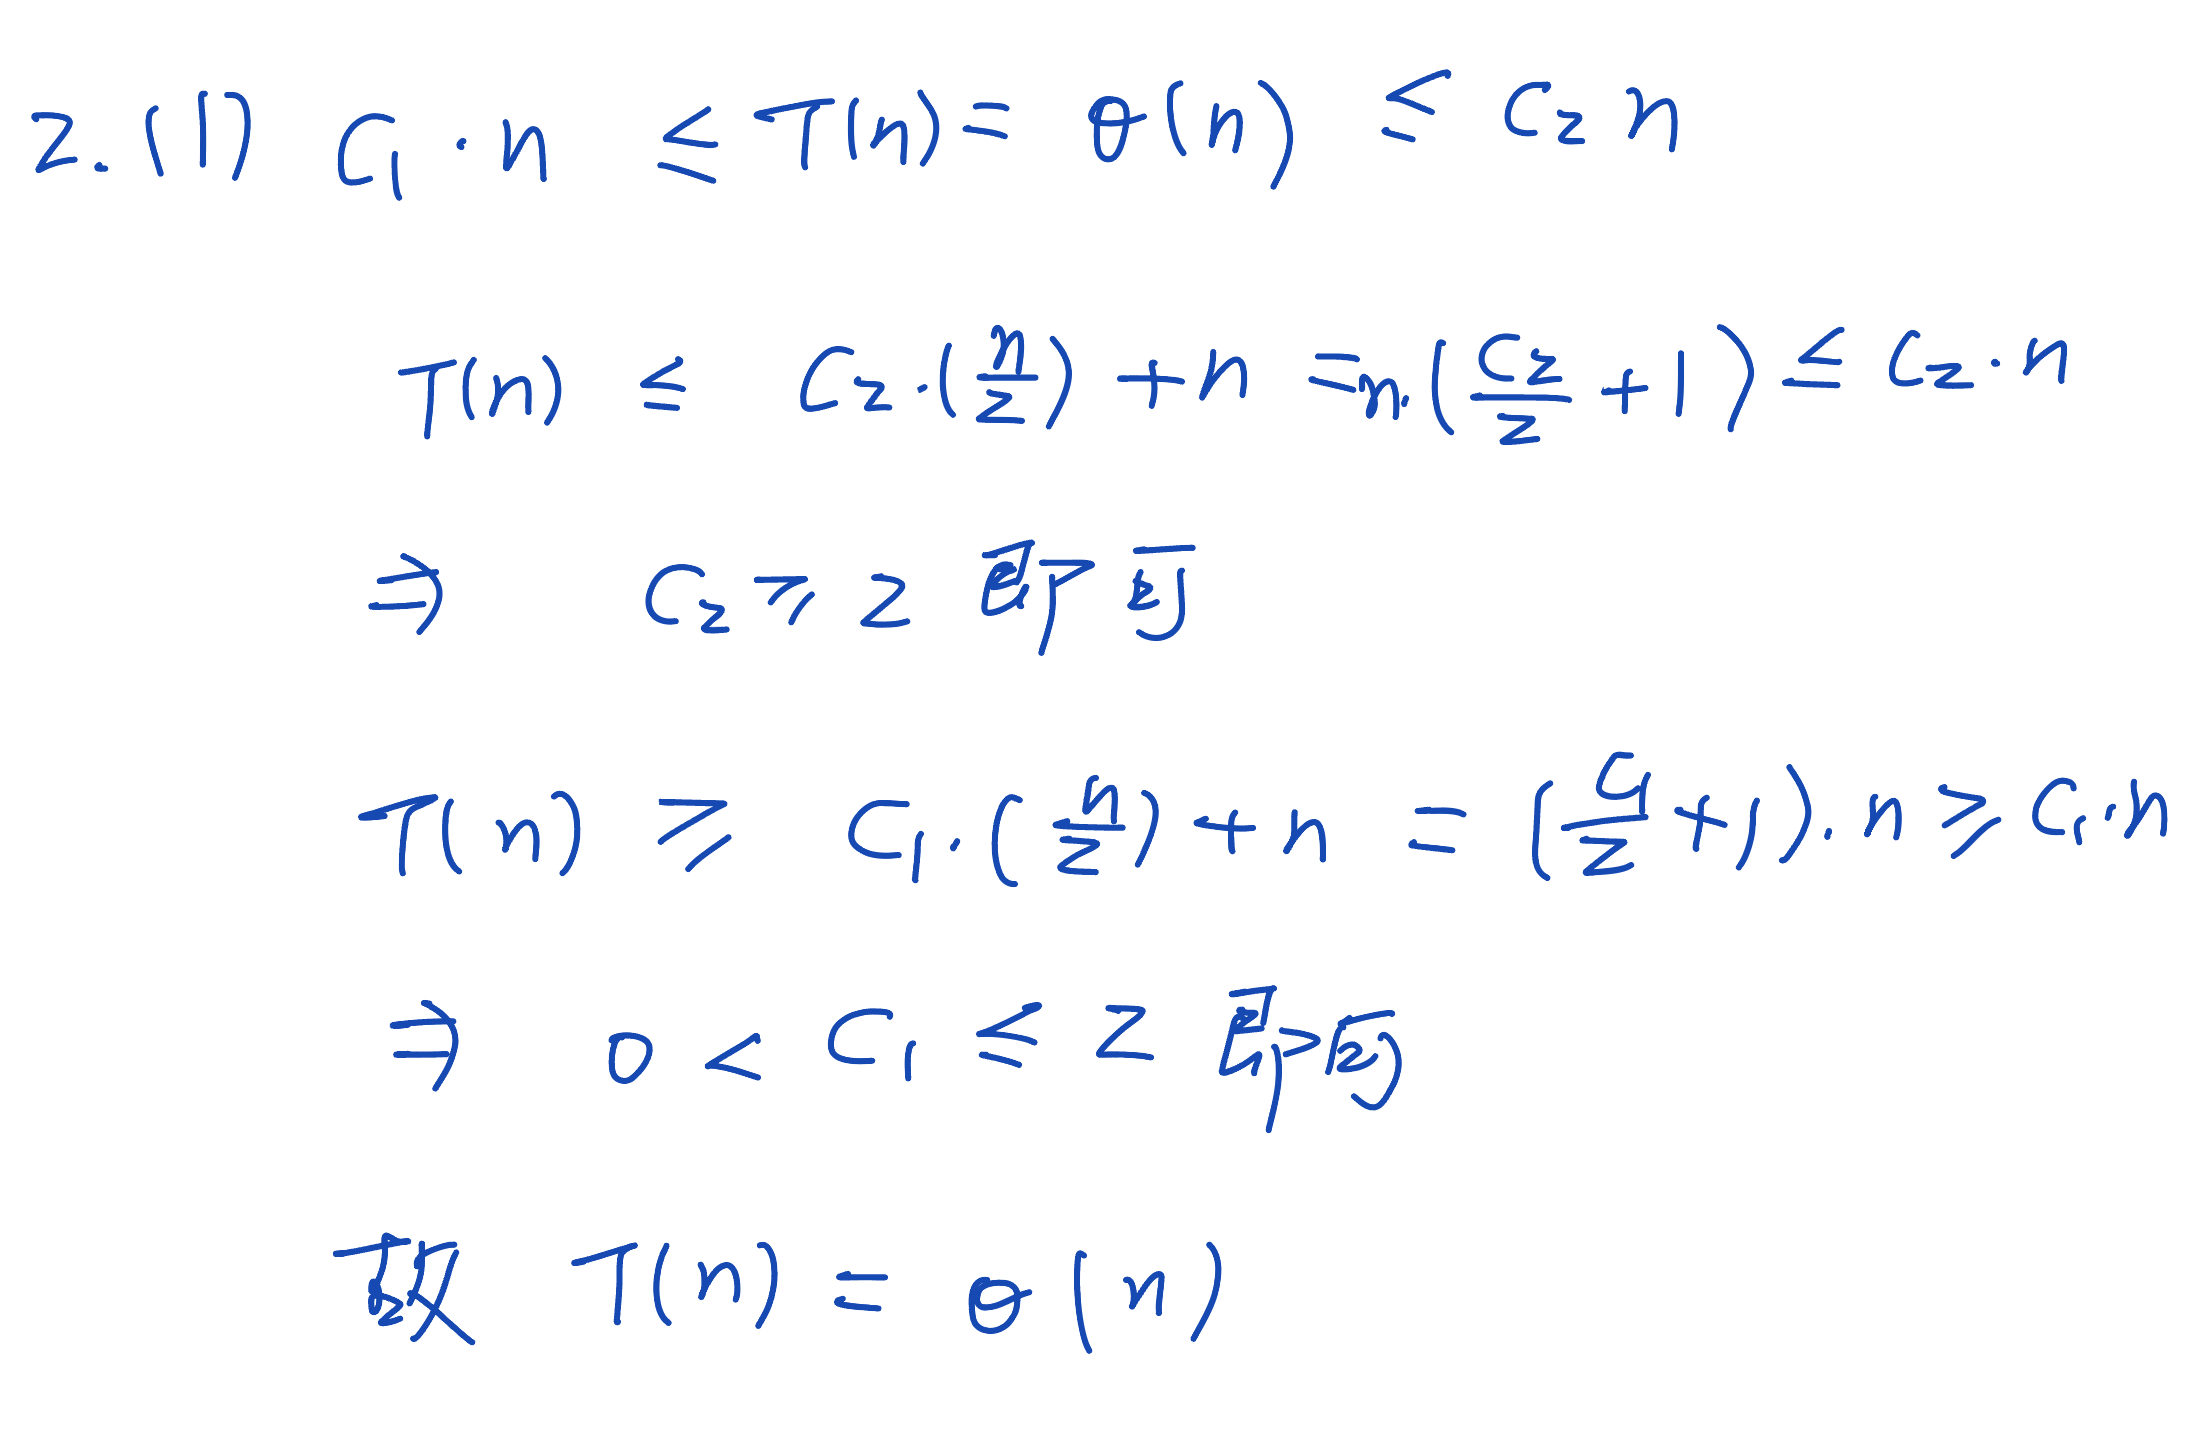 2. (1) C₁ · n ≤ T(n) = θ(n) ≤ C₂ n
T(n) ≤ C₂ · (n/2) + n = n · (C₂/2 + 1) ≤ C₂ · n
⇒ C₂ ≥ 2 即可
T(n) ≥ C₁ · (n/2) + n = (C₁/2 + 1) · n ≥ C₁ · n
⇒ 0 < C₁ ≤ 2 即可
故 T(n) = θ(n)